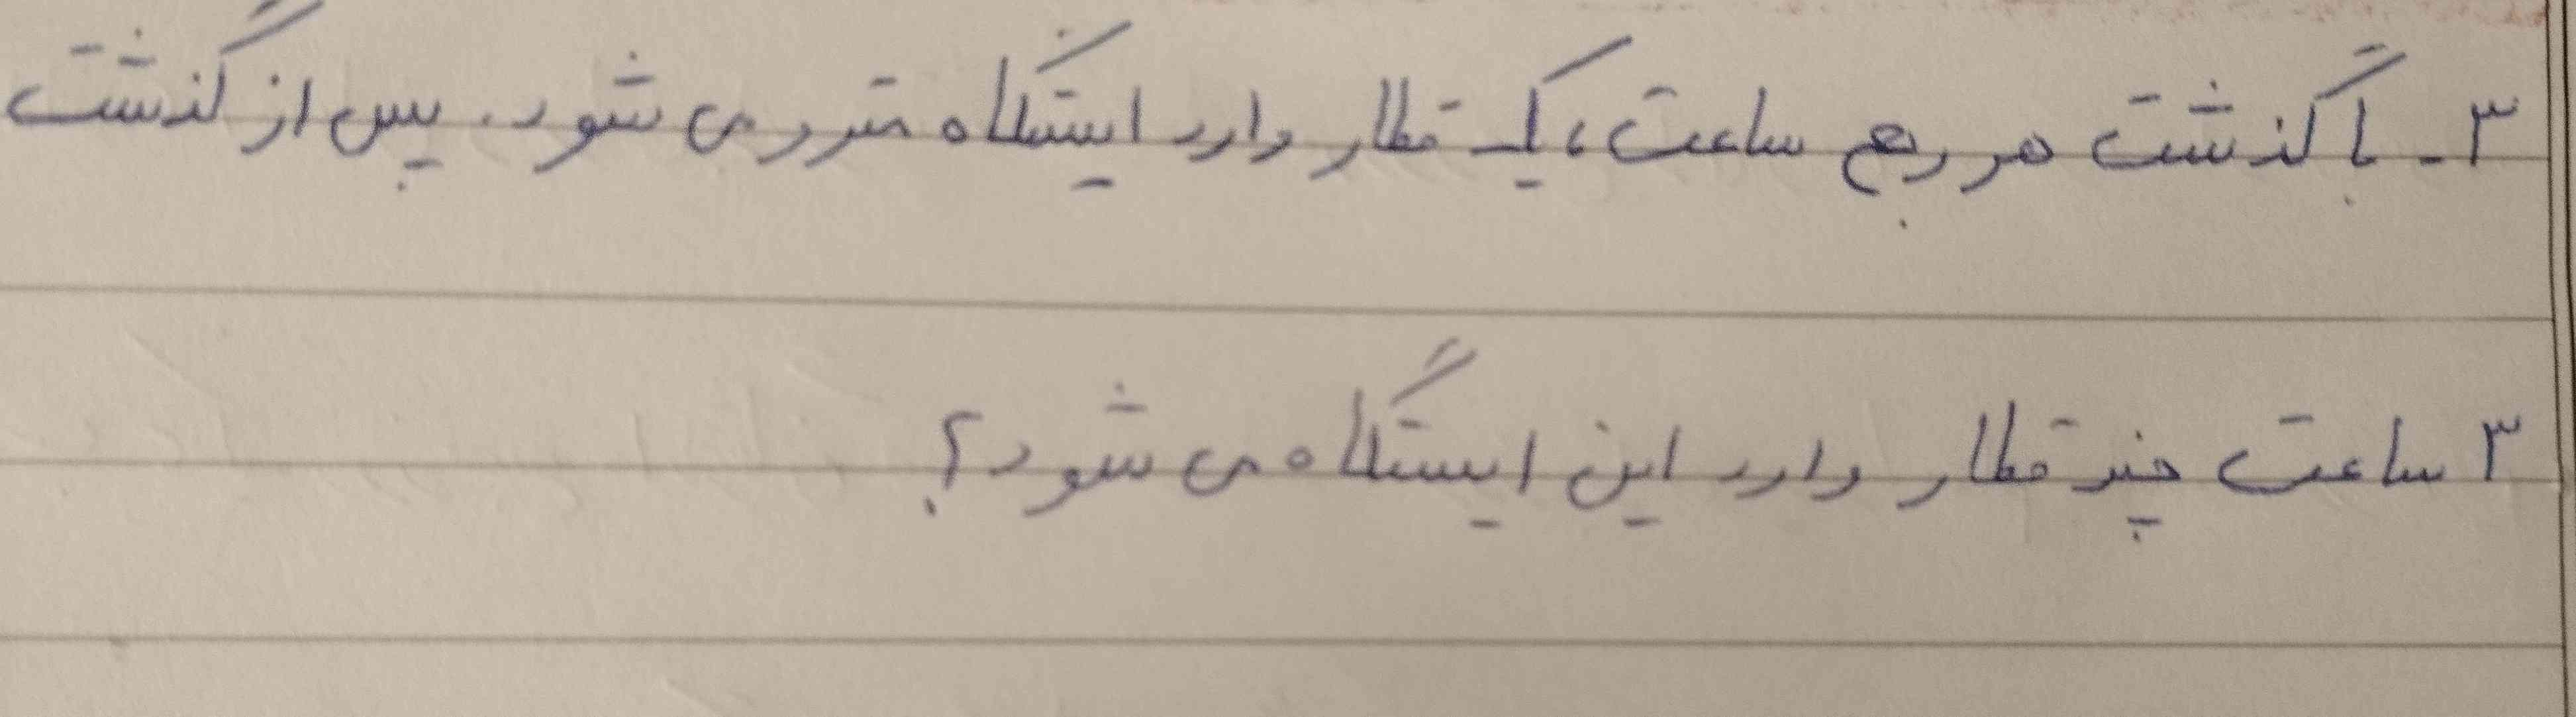 ۳- با گذشت هر ربع ساعت، یک قطار وارد ایستگاه مترو می شود. پس از گذشت
۳ ساعت چند قطار وارد این ایستگاه می شود؟